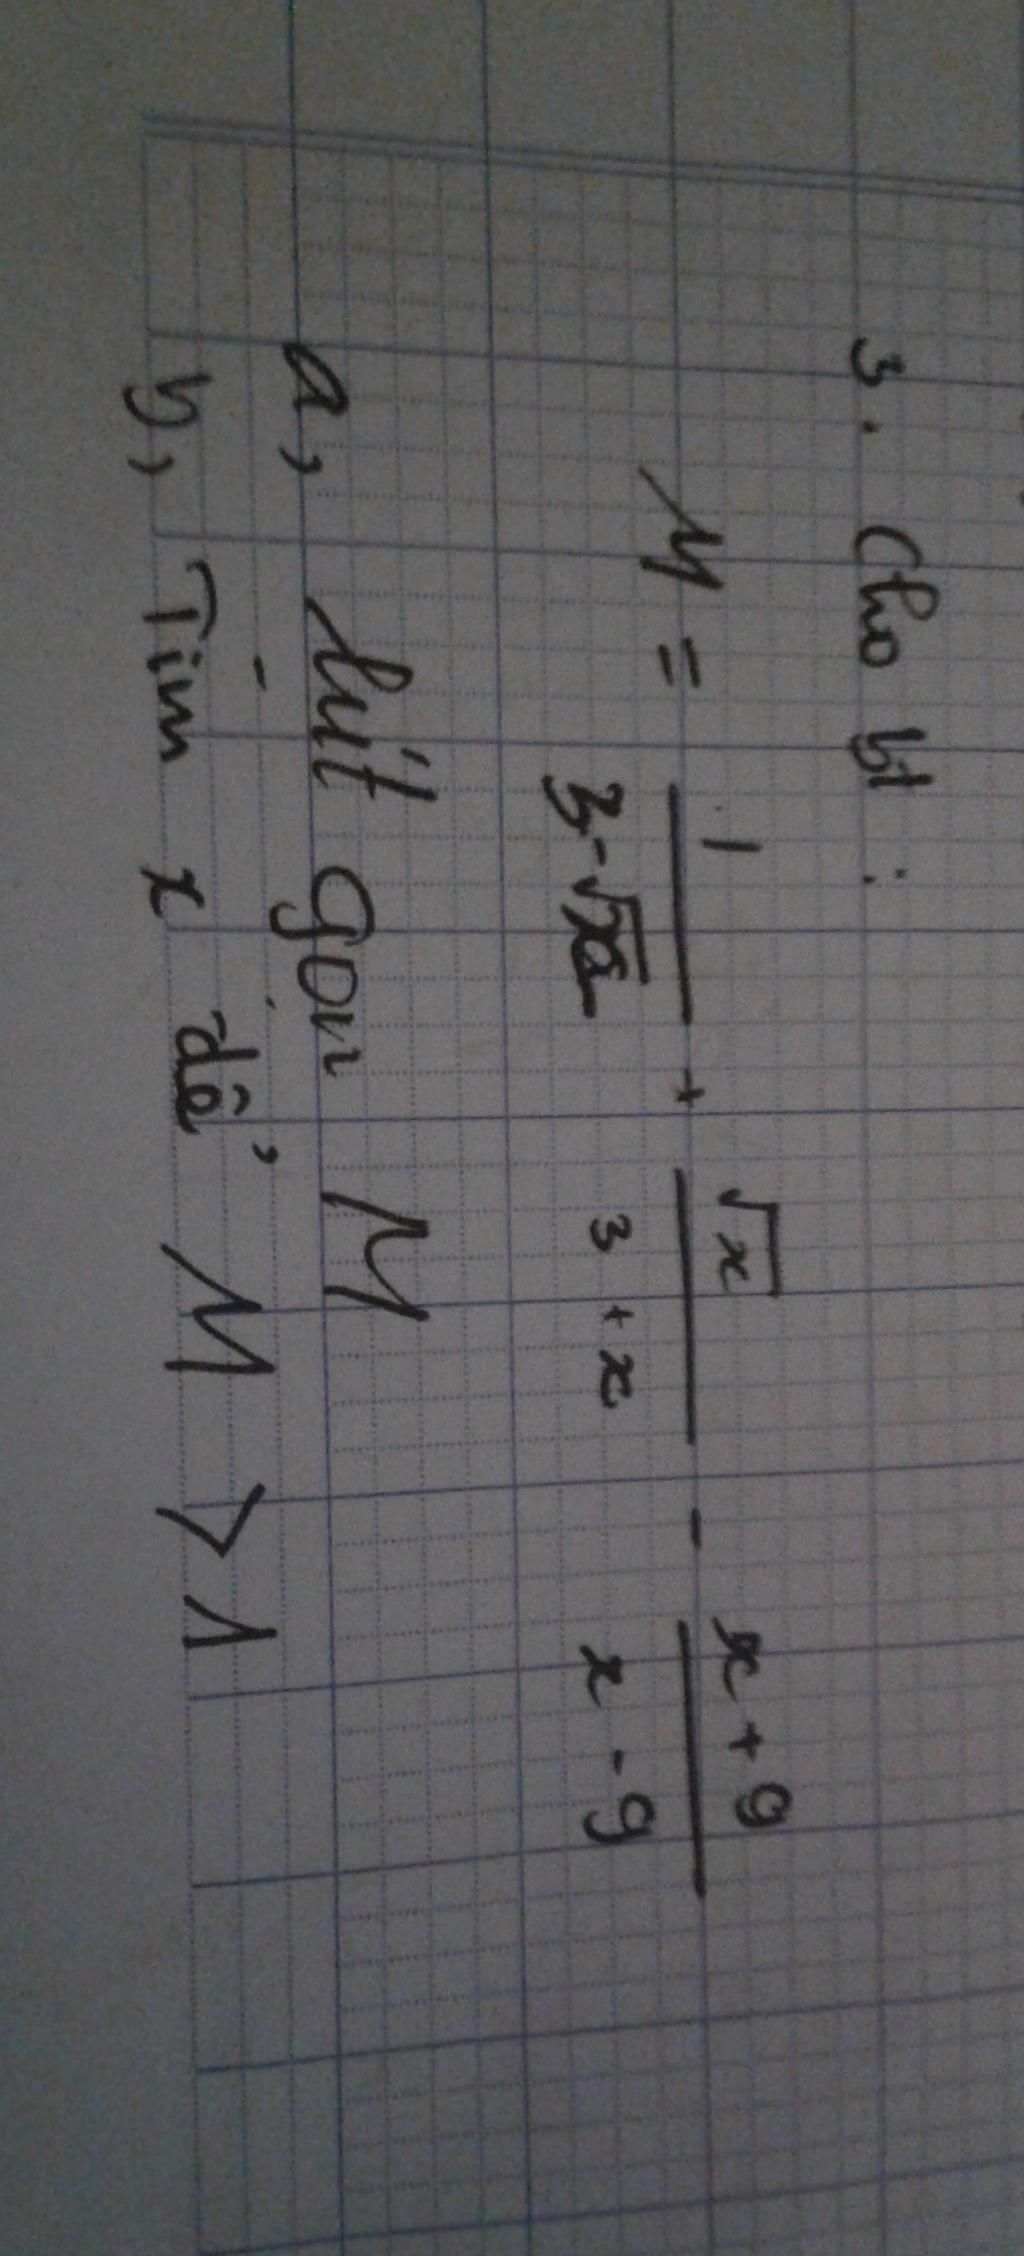 3. Cho bt :
M = 1/(3-√x) + √x/(3 + x) - (x + 9)/(x - 9)
a, Rút gọn M
b, Tìm x để M > 1